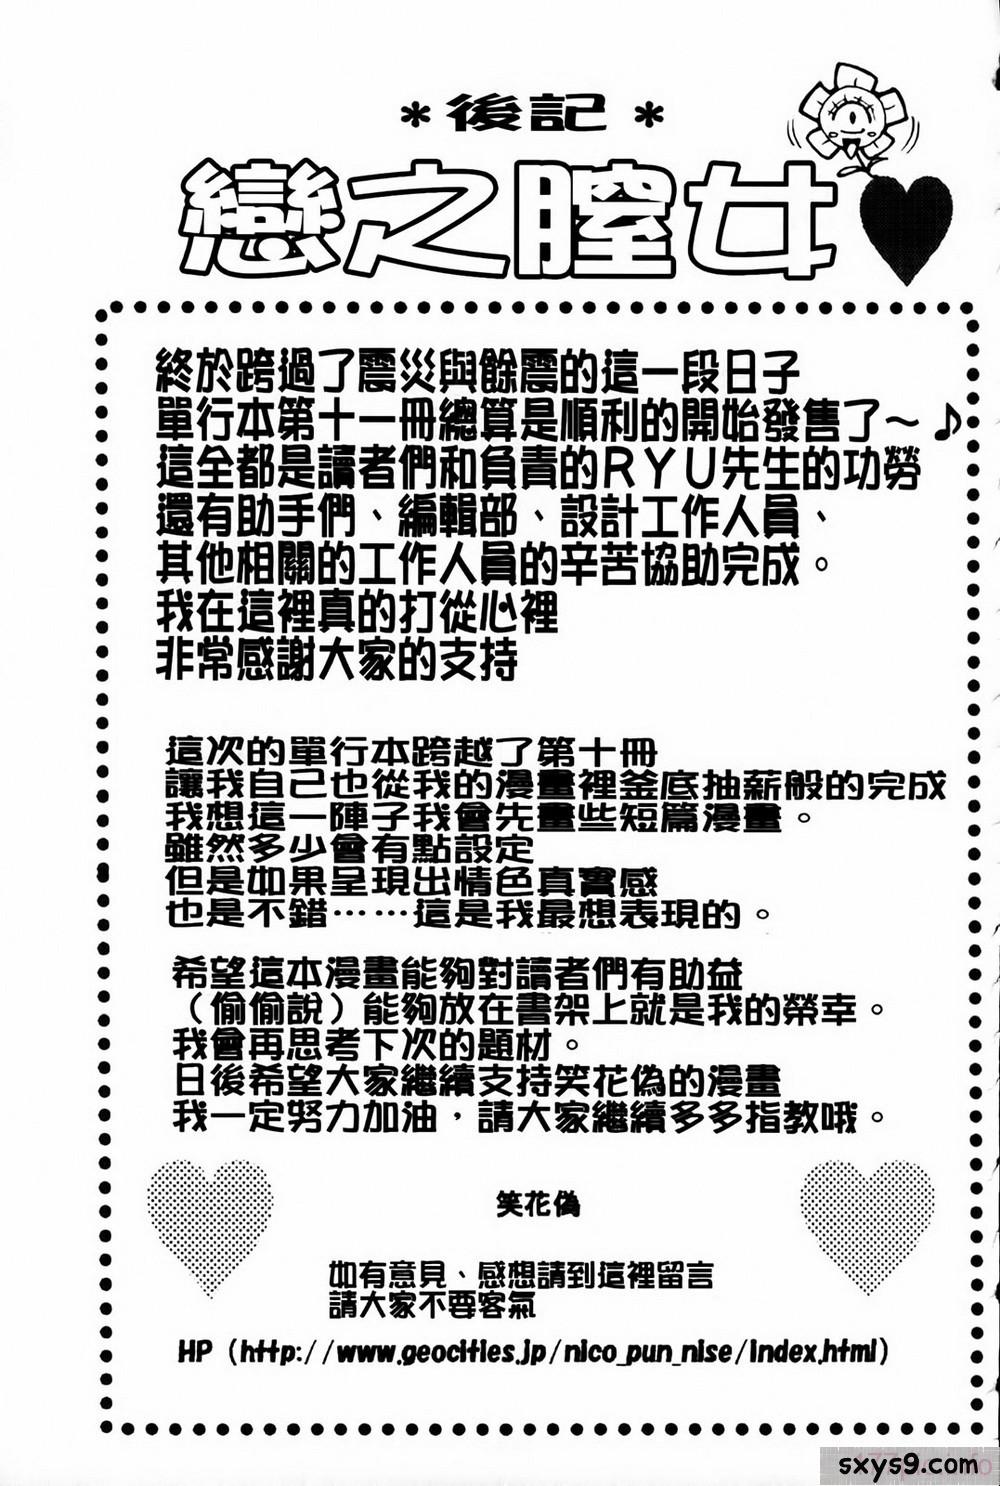 ＊後記＊
戀之膣女
終於跨過了震災與餘震的這一段日子
單行本第十一冊總算是順利的開始發售了～♪
這全都是讀者們和負責的ＲＹＵ先生的功勞
還有助手們、編輯部、設計工作人員、
其他相關的工作人員的辛苦協助完成。
我在這裡真的打從心裡
非常感謝大家的支持
這次的單行本跨越了第十冊
讓我自己也從我的漫畫裡釜底抽薪般的完成
我想這一陣子我會先畫些短篇漫畫。
雖然多少會有點設定
但是如果呈現出情色真實感
也是不錯……這是我最想表現的。
希望這本漫畫能夠對讀者們有助益
（偷偷說）能夠放在書架上就是我的榮幸。
我會再思考下次的題材。
日後希望大家繼續支持笑花偽的漫畫
我一定努力加油，請大家繼續多多指教哦。
笑花偽
如有意見、感想請到這裡留言
請大家不要客氣
HP（http://www.geocities.jp/nico_pun_nise/index.html）
sxys9.com